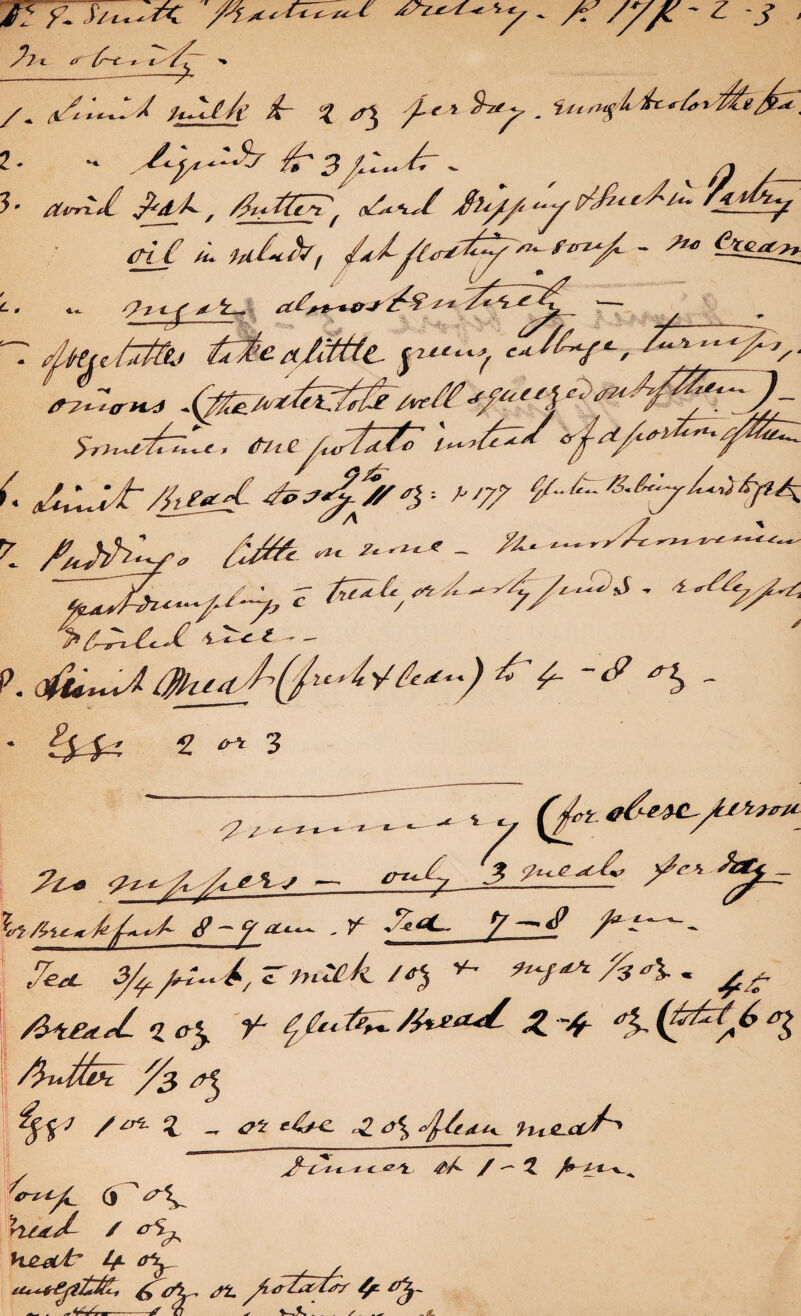 Dr E. Smith "Practical Dietary - P. 171 - 2 - 3
In obesity -
1. Limit milk to 2 oz per day. enough to color the tea.
2. " liquids to 3 pints -
3. avoid Fat, Butter, Lard Dripping & Suet in Pastry
oil in salads, fat floating on soup - no Cream
4. " sugar almost entirely -
5. of vegetables take a little greens, cabbage, turnips,
onions - (the water to be well squeezed out of them) -
Sometimes one potato instead of a portion of them
6. Limit Bread to say 9 to 11 oz: p 177 Gluten B. being hard to get
7. Puddings little or none - The most convenient
yeast dumpling, c̄ treacle, or hasty pudds. rolly poly
& boiled rice -
8. Limit Meat (fresh & lean) to 4 - 8 oz -
Eggs 2 or 3
Summary (for obese person
No suppers - only 3 meals per day -
For Breakfast 8 - 9 am. & Tea 7 - 8 pm.
Tea 3/4 pint, c̄ milk 1 oz & sugar 1/3 oz.
Bread 2 oz & Gluten Bread 2-4 oz (total 4 to 6 oz
Butter 1/3 oz
Eggs 1 or 2 - or else 2 oz of lean meat
Dinner at 1 - 2 pm.
Soup 6 oz
Bread 1 oz
meat 4 oz
6 oz or potatos 4 oz